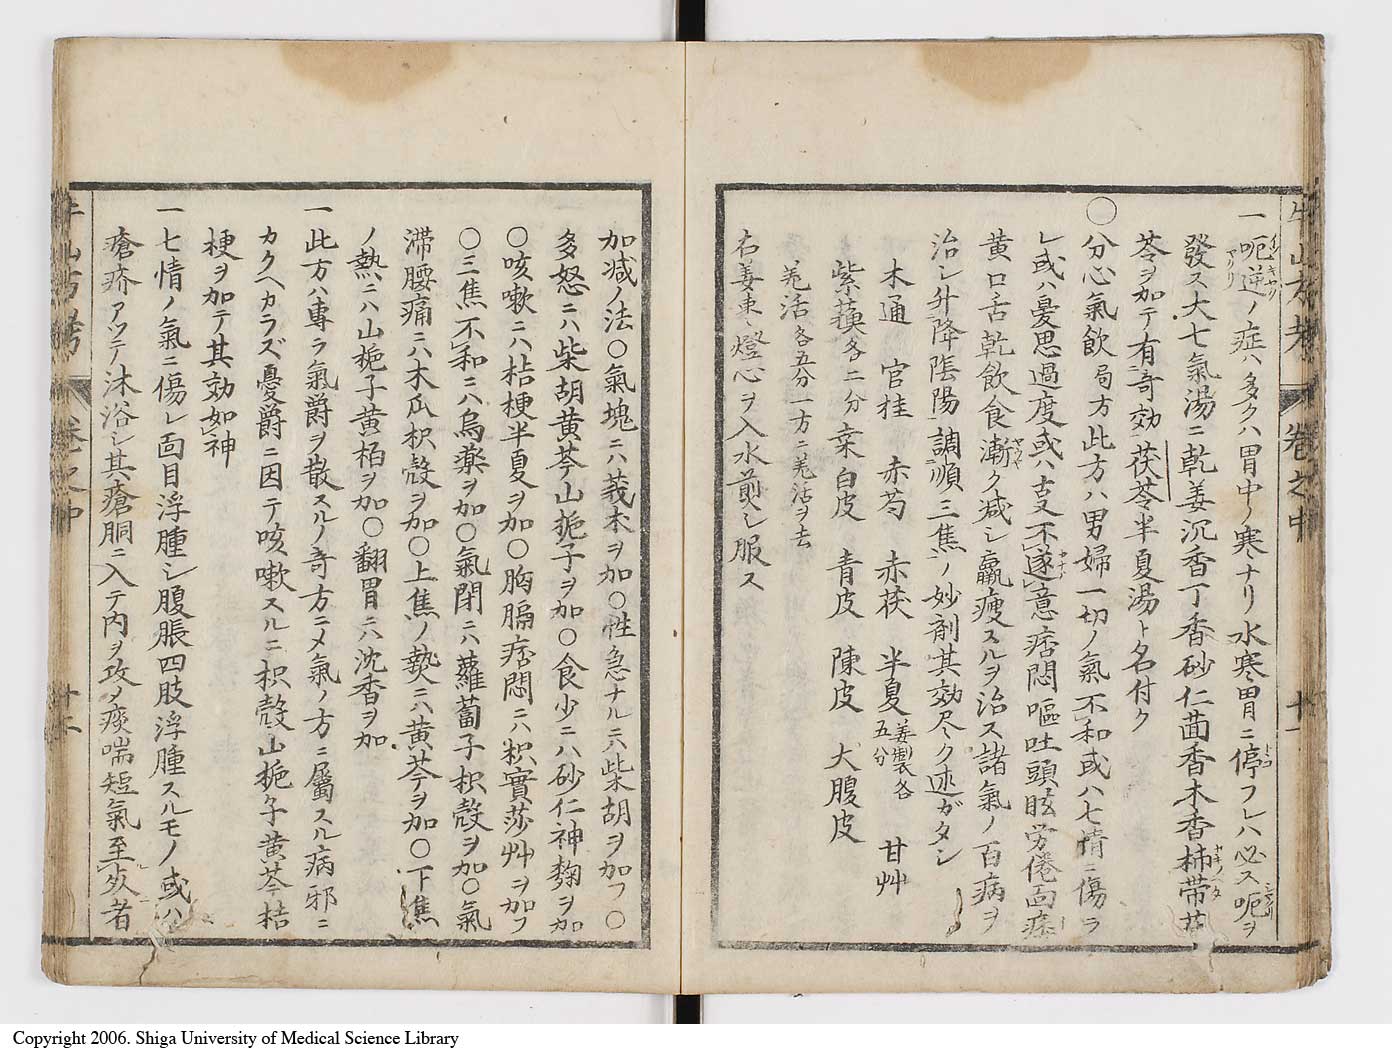 牛山方考 卷之中 十一
一呃逆ノ症ハ多クハ胃中ノ寒ナリ水寒胃ニ停フレハ必ス呃ヲ
發ス大七氣湯ニ乾姜沉香丁香砂仁茴香木香柿蒂茯
苓ヲ加テ有奇効茯苓半夏湯ト名付ク
〇分心氣飲局方此方ハ男婦一切ノ氣不和或ハ七情ニ傷ラ
レ或ハ憂思過度或ハ叓不遂意痞悶嘔吐頭眩労倦面痿
黄口舌乾飲食漸ク减シ羸痩スルヲ治ス諸氣ノ百病ヲ
治シ升降陰陽調順三焦ノ妙剤其効尽ク述ガタシ
木通 官桂 赤芍 赤茯 半夏姜製各五分 甘艸
紫蘇各二分桒白皮 青皮 陳皮 大腹皮
羌活各五分一方ニ羌活ヲ去
右姜東燈心ヲ入水煎シ服ス
加减ノ法〇氣塊ニハ莪朮ヲ加〇性急ナルニハ柴胡ヲ加フ〇
多怒ニハ柴胡黄芩山梔子ヲ加〇食少ニハ砂仁神麹ヲ加
〇咳嗽ニハ桔梗半夏ヲ加〇胸膈痞悶ニハ枳實莎艸ヲ加フ
〇三焦不和ニハ烏薬ヲ加〇氣閉ニハ蘿蔔子枳殼ヲ加〇氣
滞腰痛ニハ木瓜枳殼ヲ加〇上焦ノ熱ニハ黄芩ヲ加〇下焦
ノ熱ニハ山梔子黄栢ヲ加〇翻胃ニハ沈香ヲ加
一此方ハ専ラ氣欝ヲ散スルノ奇方ニメ氣ノ方ニ屬スル病邪ニ
カクヘカラズ憂欝ニ因テ咳嗽スルニ枳殼山梔子黄芩桔
梗ヲ加テ其効如神
一七情ノ氣ニ傷レ面目浮腫シ腹脹四肢浮腫スルモノ或ハ
瘡疥アツテ沐浴シ其瘡胴ニ入テ内ヲ攻メ痰喘短氣至死者
牛山方考 卷之中 十二
Copyright 2006. Shiga University of Medical Science Library